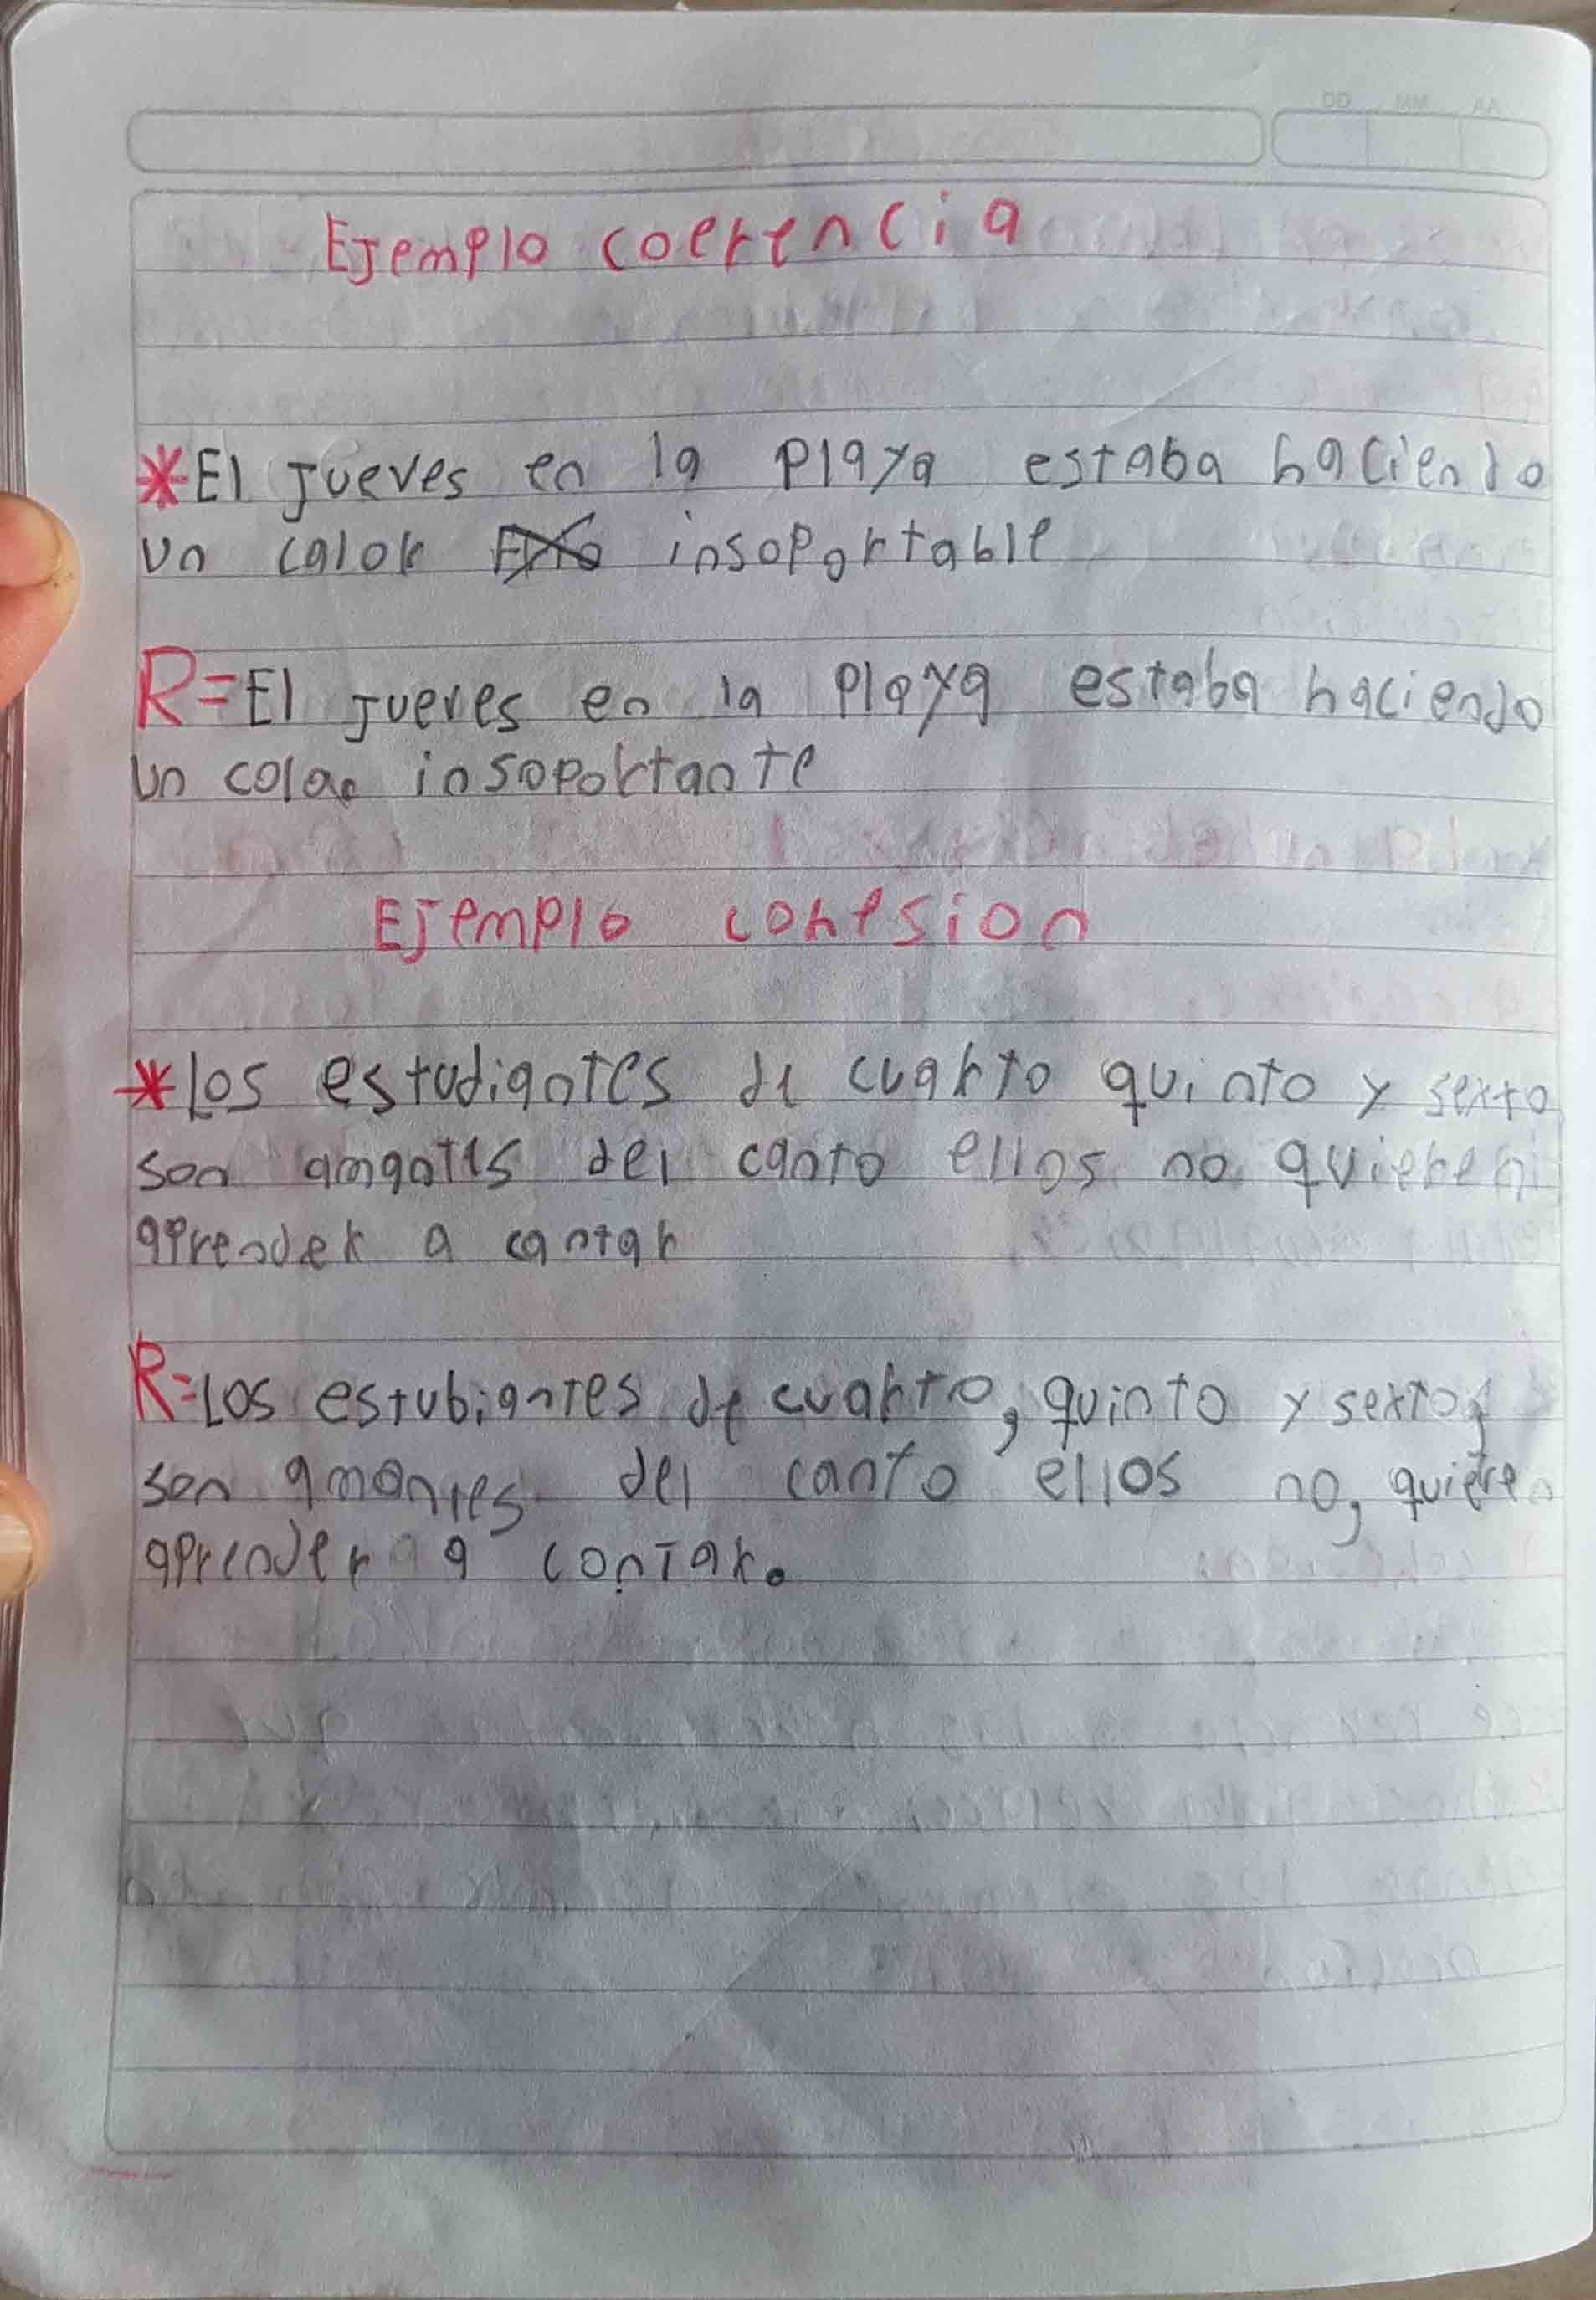 DD MM AA
Ejemplo coerencia
*El jueves en la playa estaba haciendo
un calor insoportable
R=El jueves en la playa estaba haciendo
un colao insoportante
Ejemplo cohesion
*Los estudiantes de cuarto quinto y sexto
son amgates del canto ellos no quieren
aprender a cantar
R=Los estubiantes de cuarto, quinto y sexto,
son amantes del canto ellos no, quieren
aprender a contar.